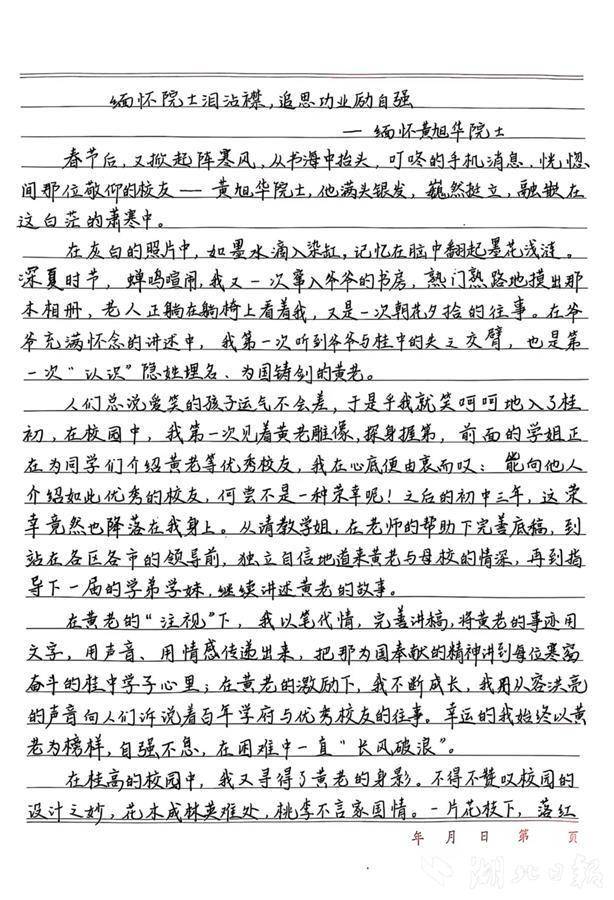 缅怀院士泪沾襟，追思功业励自强
— 缅怀黄旭华院士
春节后，又掀起阵寒风，从书海中抬头，叮咚的手机消息，恍惚
间那位敬仰的校友 — 黄旭华院士，他满头银发，巍然挺立，融散在
这白茫的萧寒中。
在灰白的照片中，如墨水滴入染缸，记忆在脑中翻起墨花浅涟。
深夏时节，蝉鸣喧闹，我又一次窜入爷爷的书房，熟门熟路地摸出那
本相册，老人正躺在躺椅上看着我，又是一次朝花夕拾的往事。在爷
爷充满怀念的讲述中，我第一次听到爷爷与桂中的失之交臂，也是第
一次“认识”隐姓埋名、为国铸剑的黄老。
人们总说爱笑的孩子运气不会差，于是乎我就笑呵呵地入了桂
初，在校园中，我第一次见着黄老雕像，探身握第，前面的学姐正
在为同学们介绍黄老等优秀校友，我在心底便由衷而叹：能向他人
介绍如此优秀的校友，何尝不是一种荣幸呢！之后的初中三年，这荣
幸竟然也降落在我身上。从请教学姐，在老师的帮助下完善底稿，到
站在各区各市的领导前，独立自信地道来黄老与母校的情深，再到指
导下一届的学弟学妹，继续讲述黄老的故事。
在黄老的“注视”下，我以笔代情，完善讲稿，将黄老的事迹用
文字，用声音、用情感传递出来，把那为国奉献的精神讲到每位寒窗
奋斗的桂中学子心里；在黄老的激励下，我不断成长，我用从容洪亮
的声音向人们诉说着百年学府与优秀校友的往事。幸运的我始终以黄
老为榜样，自强不息，在困难中一直“长风破浪”。
在桂高的校园中，我又寻得了黄老的身影。不得不赞叹校园的
设计之妙，花木成林英难处，桃李不言家国情。一片花枝下，落红
年 月 日 第 页
湖北日报